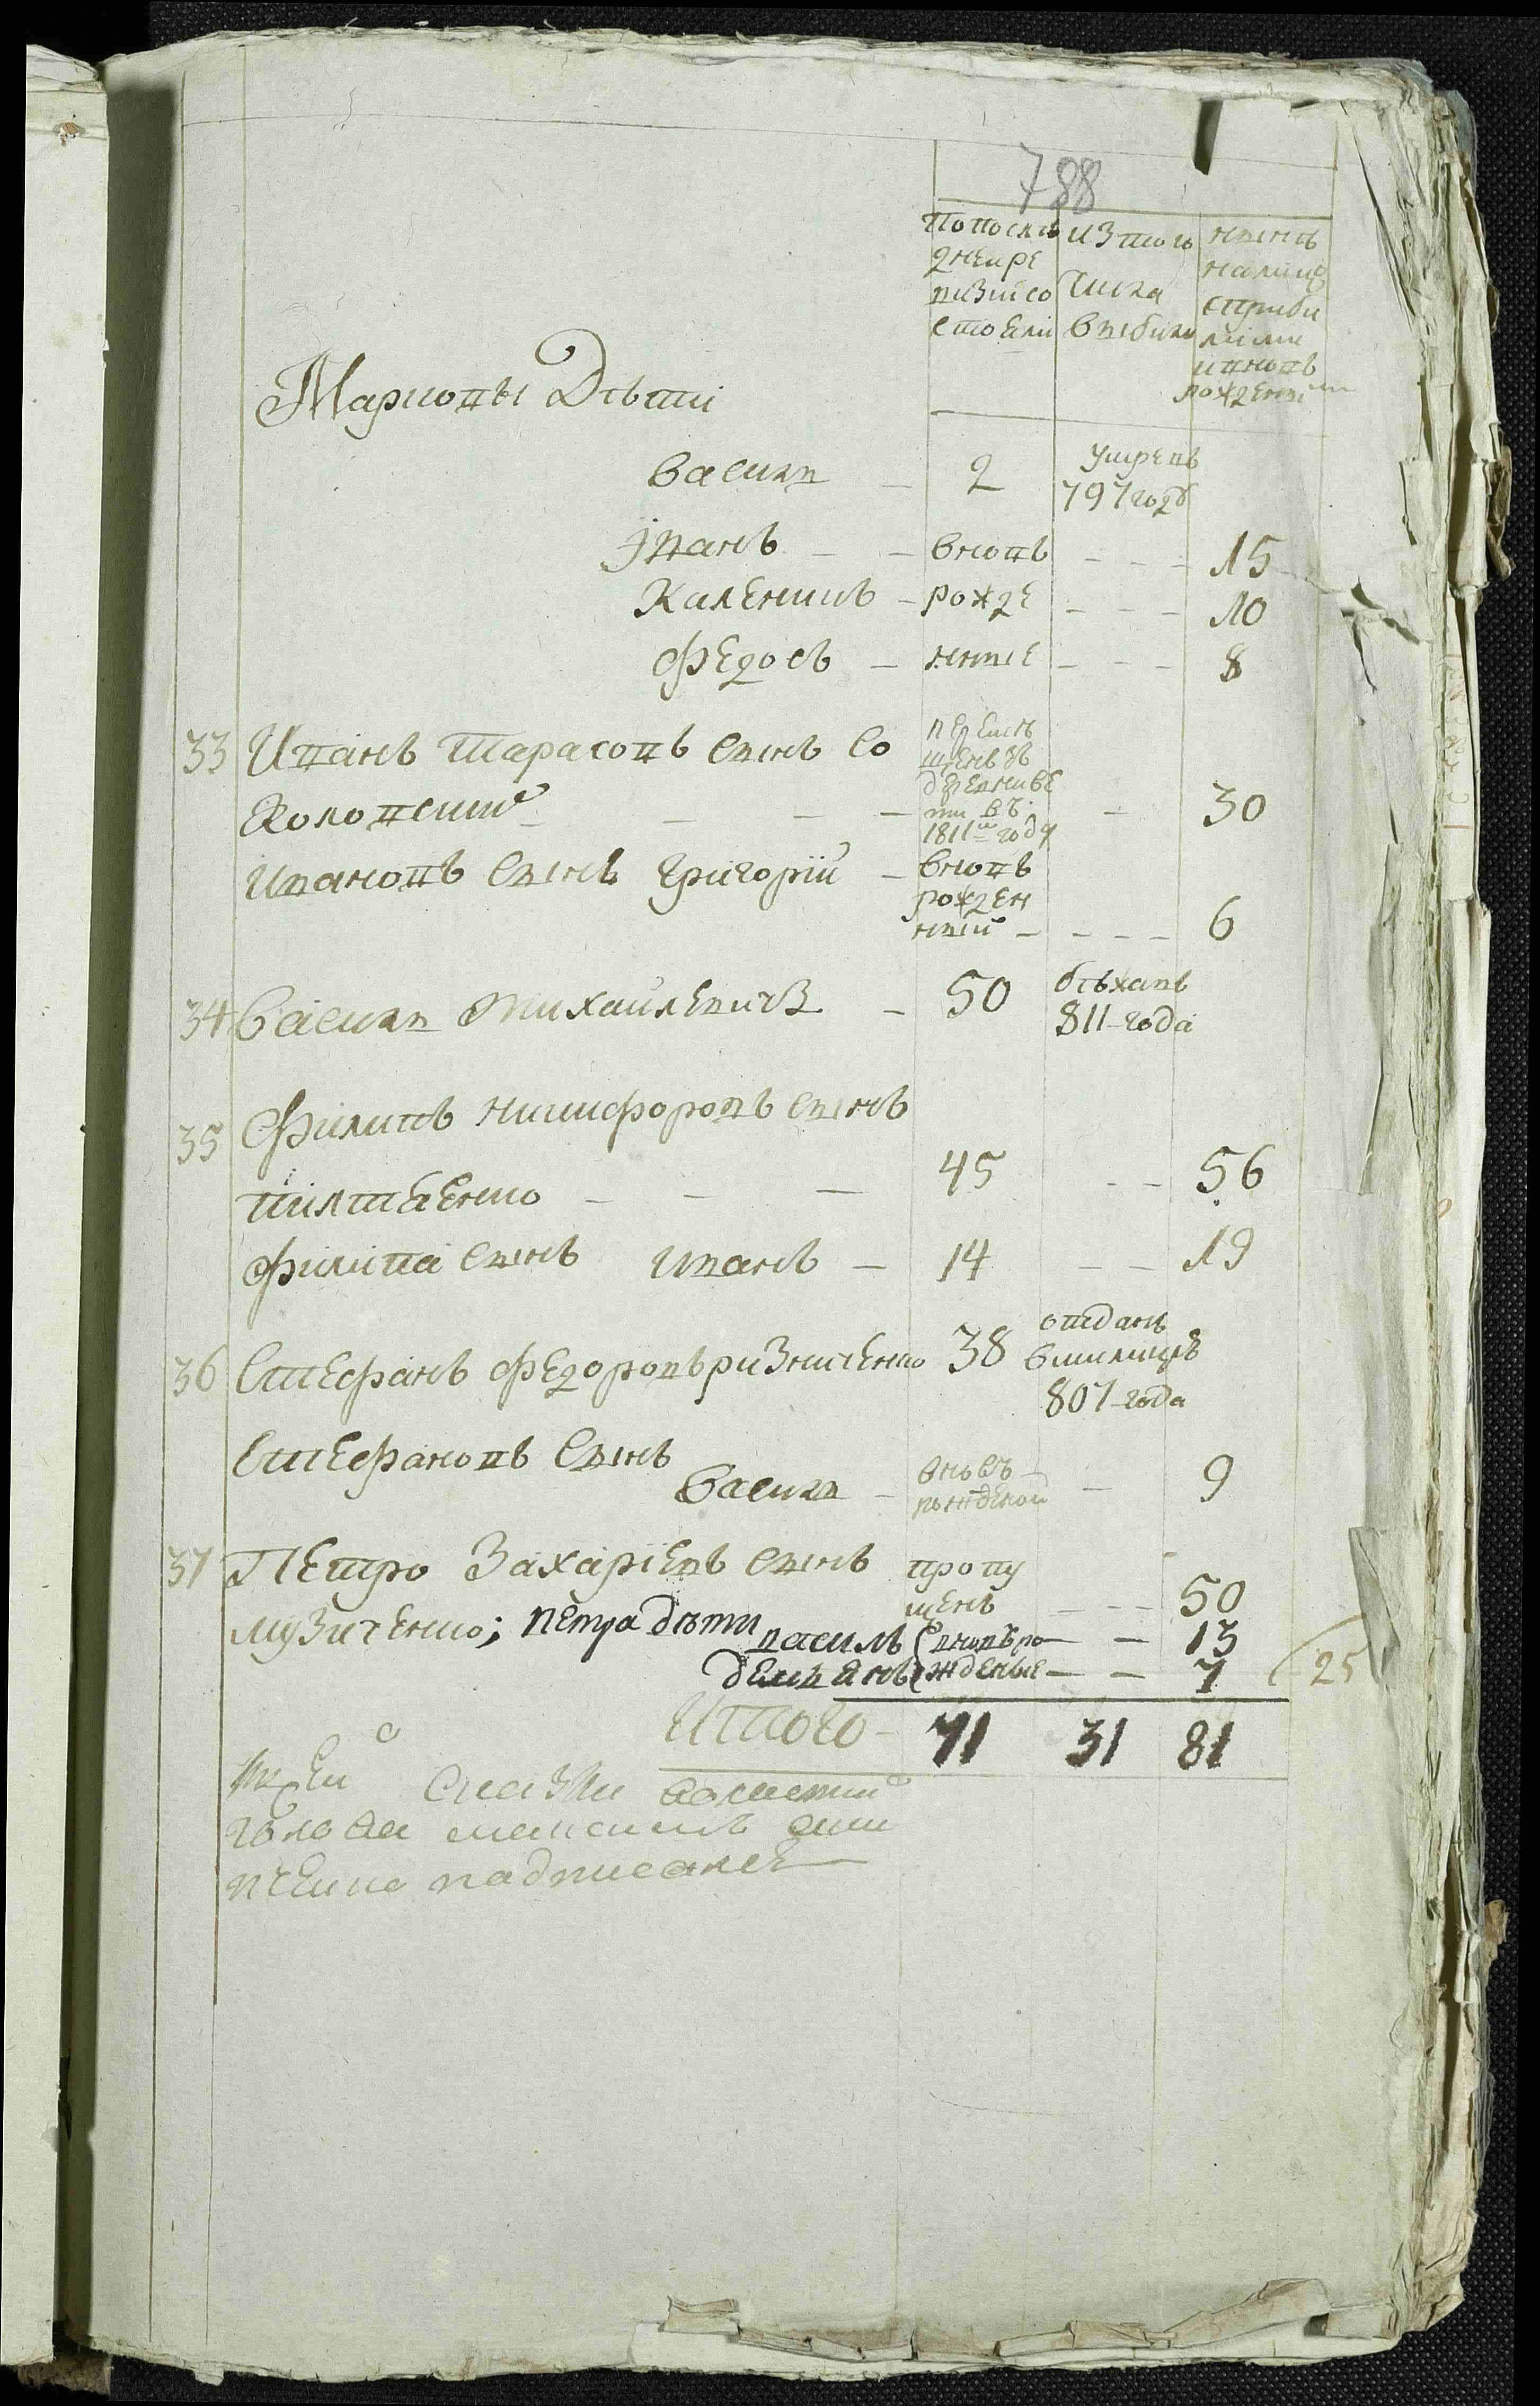 788
По последней ревизии состояли
Из того числа выбыло
Ныне налицо с прибылыми и вновь рожденными
Марковы Дѣти
Василь - 2 умре въ 797 году
Иванъ - - вновь - - - 15
Каленикъ - рожде - - - 10
Федосъ - нные - - - 8
33 Иванъ Тарасовъ сынъ Со
коловский - - - - 30
1811го году
Ивановъ сынъ Григорий - вновь
рожден
ный - - - - 6
34 Василь Михайлевичъ - 50 бѣжалъ
811 года
35 Филипъ Никифоровъ сынъ
Пилтаенко - - - 45 - - 56
Филипа сынъ Иванъ - 14 - - 19
36 Стефанъ Федоровъ Ризниченко 38 отданъ
в милицию
807 года
Стефановъ сынъ
Василь - вновь
рожденой - 9
37 Петро Захариевъ сынъ пропу
щенъ - - - 50
Музиченко; Петра дѣти Василь вновь ро - - 13
Демьянъ жденые - - 7
25
Итого - 71 31 81
К сей скаски
голова Максимъ
подписался